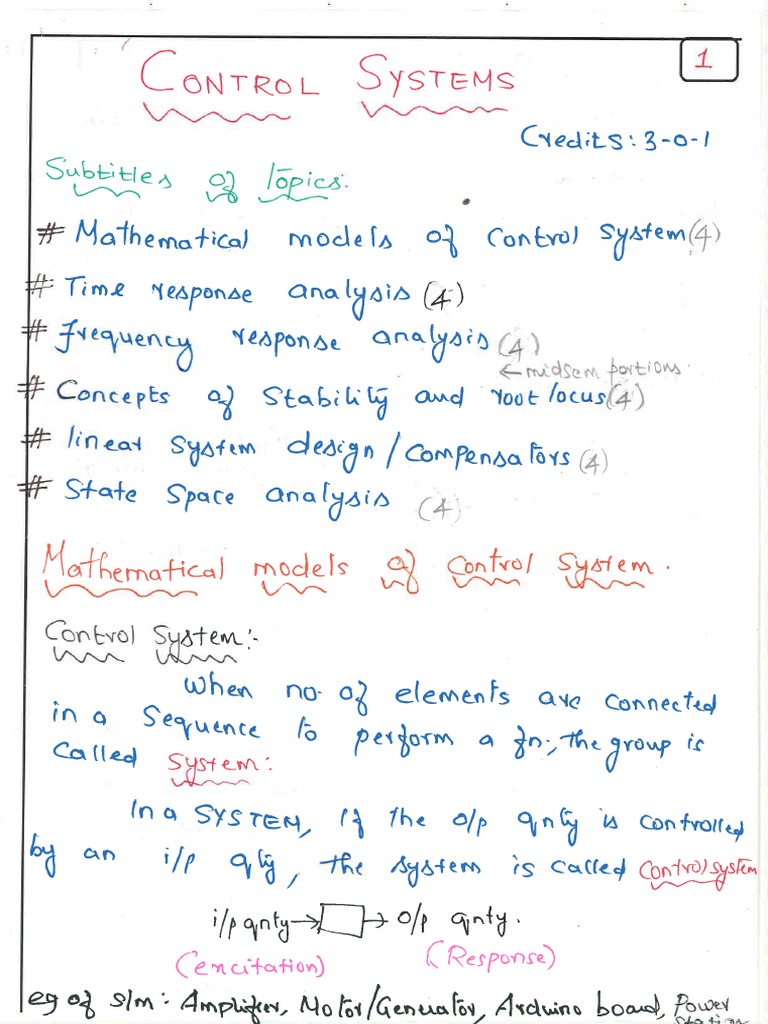 1
CONTROL SYSTEMS
Credits: 3-0-1
Subtitles of Topics:
# Mathematical models of control system (4)
# Time response analysis (4)
# frequency response analysis (4)
← midsem portions.
# Concepts of Stability and root locus (4)
# linear system design / compensators (4)
# State Space analysis (4)
Mathematical models of control system.
Control System:-
When no. of elements are connected
in a sequence to perform a fn., the group is
called system:
In a SYSTEM, if the o/p qnty is controlled
by an i/p qty, the system is called control system
i/p qnty → → o/p qnty.
(encitation) (Response)
eg of s/m: Amplifier, Motor/Generator, Arduino board, Power